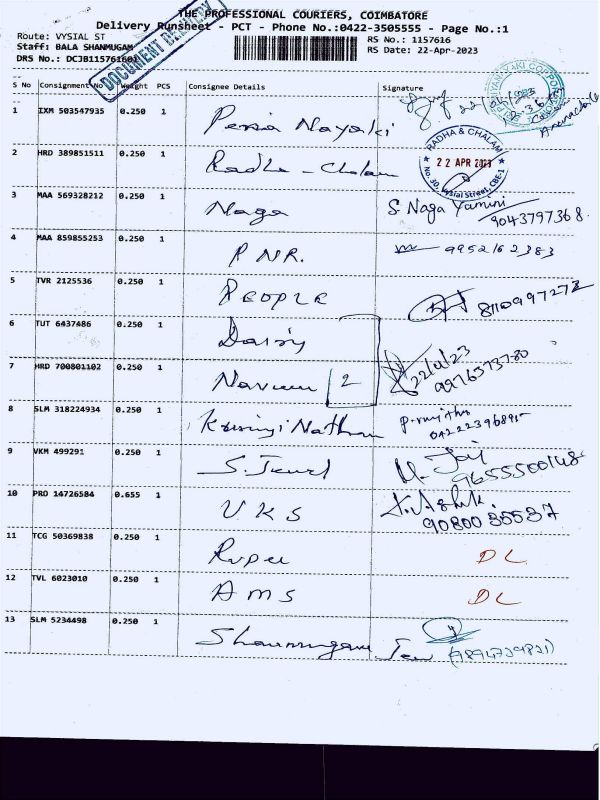 THE PROFESSIONAL COURIERS, COIMBATORE
Delivery Runsheet - PCT - Phone No.:0422-3505555 - Page No.:1
Route: VYSIAL ST
RS No.: 1157616
Staff: BALA SHANMUGAM
RS Date: 22-Apr-2023
DRS No.: DCJB115761601
DOCUMENT DELIVERY
S No Consignment No Weight PCS Consignee Details Signature
1 IXM 503547935 0.250 1 Peria Nayaki
2 HRD 389851511 0.250 1 Radha - Chalam
RADHA & CHALAM
22 APR 2023
No. 30, Vysial Street, CBE-1
3 MAA 569328212 0.250 1 Naga S. Naga Yamini
9043797368.
4 MAA 859855253 0.250 1 P NR. 9952162383
5 TVR 2125536 0.250 1 PEOPLE 8110997272
6 TUT 6437486 0.250 1 Dairy
22/4/23
7 HRD 700801102 0.250 1 Naveen 2
9976373780
8 SLM 318224934 0.250 1
9 VKM 499291 0.250 1 S. Jewel M. Jai
9655500148
10 PRO 14726584 0.655 1 VKS
9080035537
11 TCG 50369838 0.250 1 Rupee DL
12 TVL 6023010 0.250 1 AMS DL
13 SLM 5234498 0.250 1 Shanmugam (9894729821)